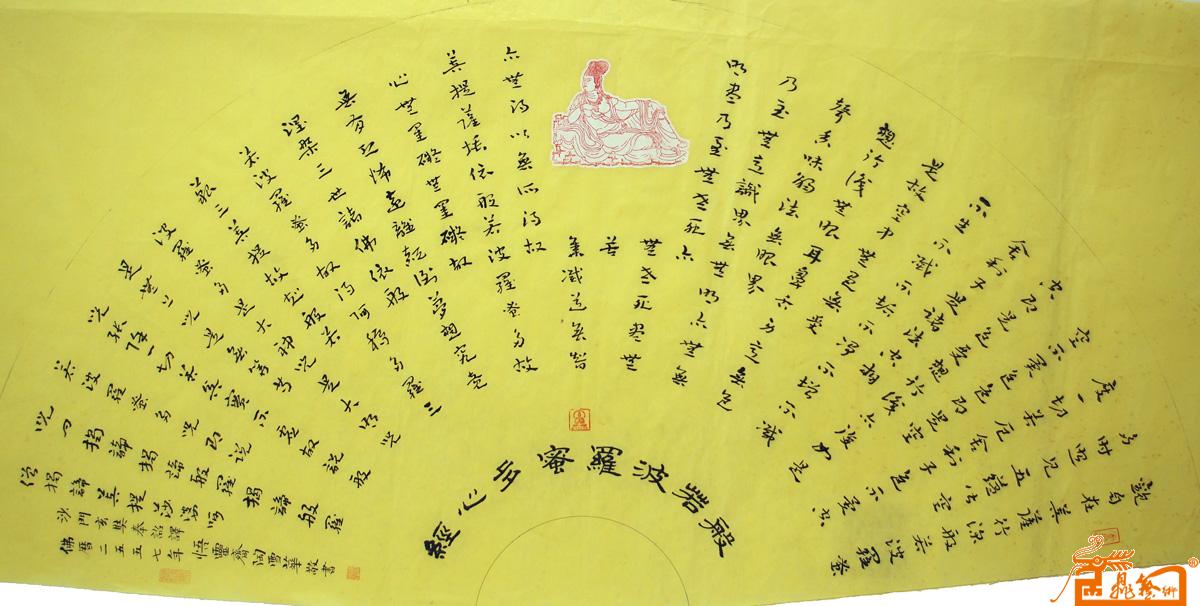 觀自在菩薩行深般若波羅蜜
多時照見五蘊皆空
度一切苦厄舍利子色不異空
空不異色色即是空
空即是色受想行識亦復如是
舍利子是諸法空相
不生不滅不垢不淨不增不減
是故空中無色無受
想行識無眼耳鼻舌身意無色
聲香味觸法無眼界
乃至無意識界無無明亦無無
明盡乃至無老死亦
無老死盡無
苦
集滅道無智
亦無得以無所得故
菩提薩埵依般若波羅蜜多故
心無罣礙無罣礙故
無有恐怖遠離顛倒夢想究竟
涅槃三世諸佛依般
若波羅蜜多故得阿耨多羅三
藐三菩提故知般若
波羅蜜多是大神咒是大明咒
是無上咒是無等等
咒能除一切苦真實不虛故說般
若波羅蜜多咒即說
咒曰揭諦揭諦般羅揭諦般羅
僧揭諦菩提莎婆訶
沙門玄奘奉詔譯
佛曆二五五七年悟靈齋陶雪華敬書
般若波羅蜜多心經